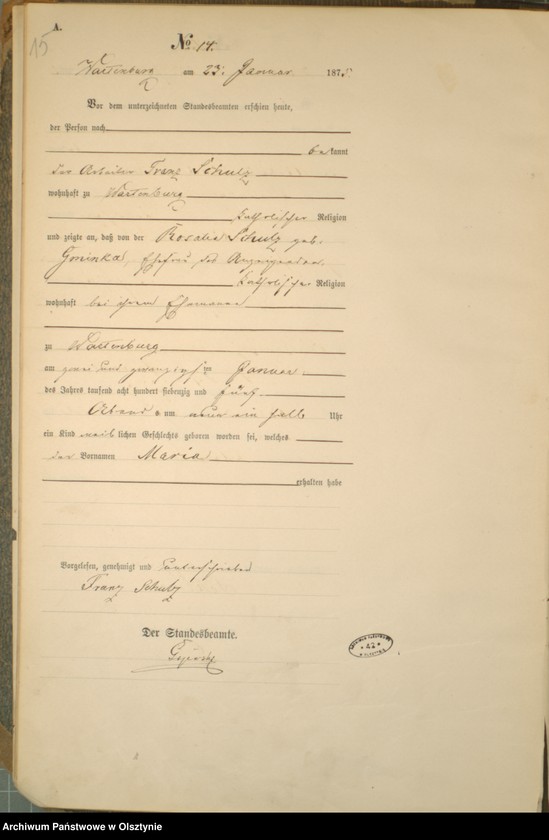 A.
15
No 14.
Wartenburg am 23. Januar 1875
Vor dem unterzeichneten Standesbeamten erschien heute,
der Person nach
bekannt
der Arbeiter Franz Schulz
wohnhaft zu Wartenburg
katholischer Religion
und zeigte an, daß von der Rosalie Schulz geb.
Ehefrau des
katholischer Religion
wohnhaft bei ihrem Ehemanne
zu Wartenburg
am zwei und zwanzigsten Januar
des Jahres tausend acht hundert siebenzig und fünf
Abends um neun ein halb Uhr
ein Kind weiblichen Geschlechts geboren worden sei, welches
den Vornamen Maria
erhalten habe
Vorgelesen, genehmigt und unterschrieben
Franz Schulz
Der Standesbeamte.
42
Archiwum Państwowe w Olsztynie